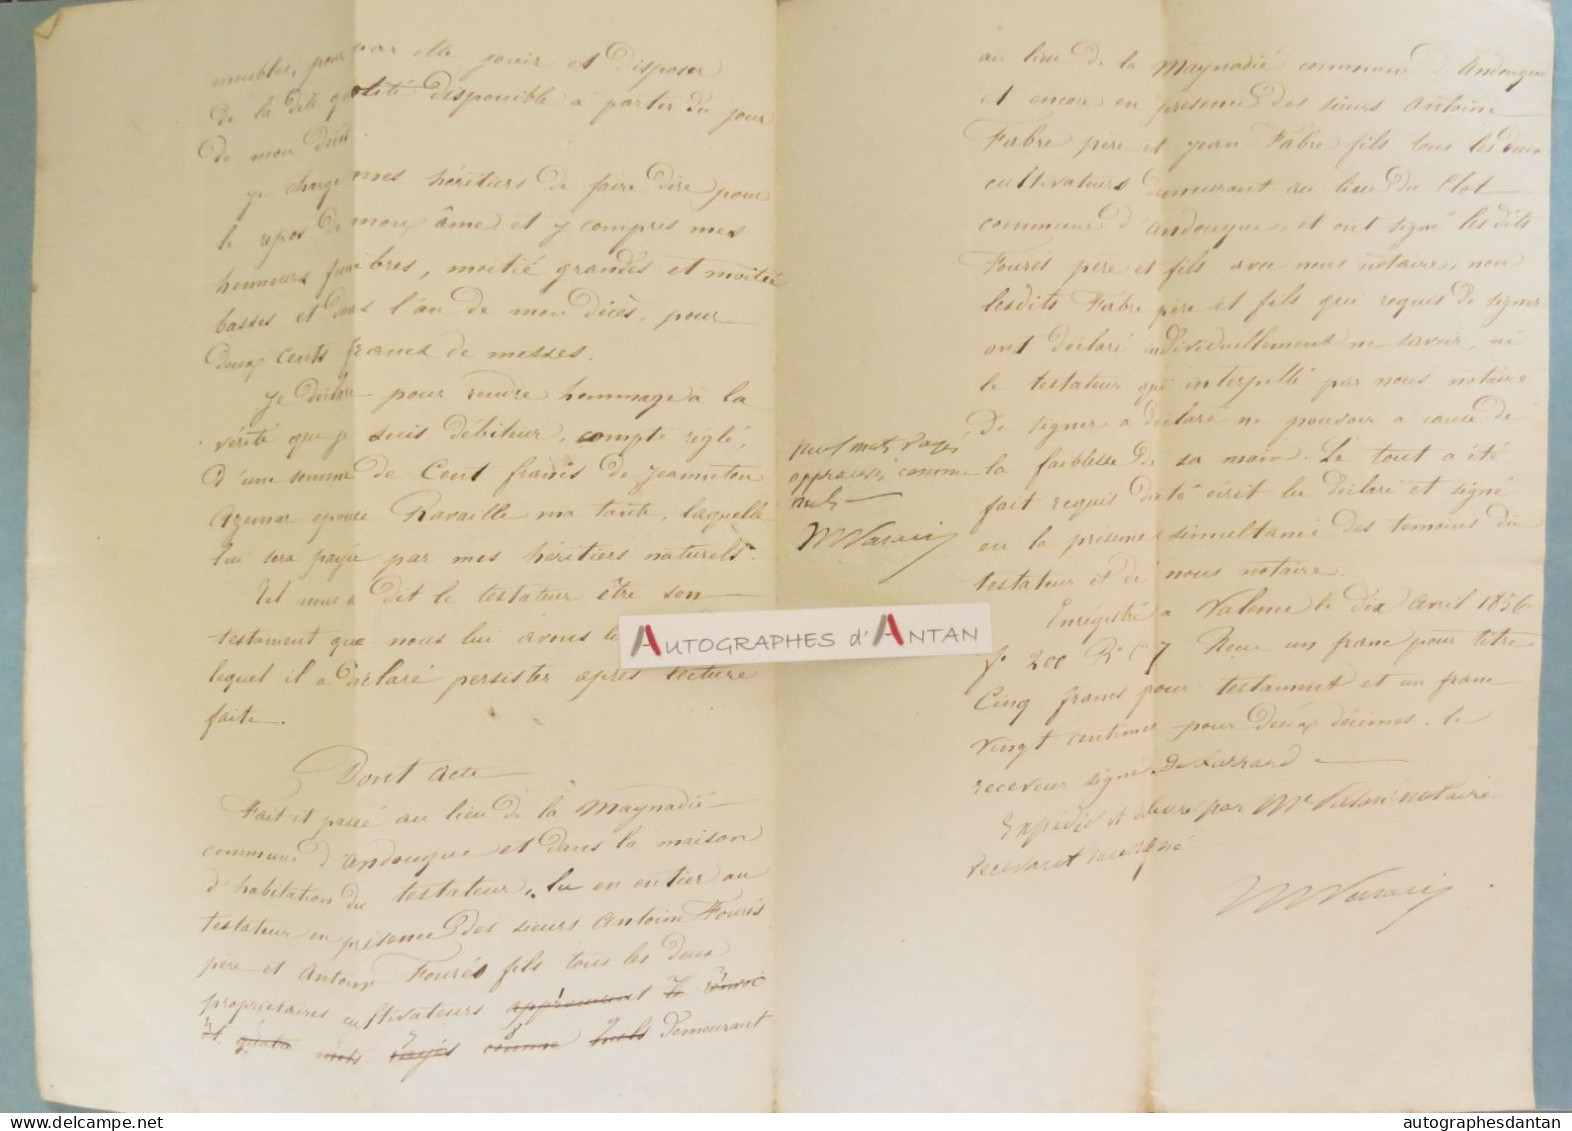 meubles, pour par elle jouir et disposer
de la dite quotité disponible à partir du jour
de mon décès.
je charge mes héritiers de faire dire pour
le repos de mon âme et y compris mes
honneurs funèbres, moitié grandes et moitié
basses et dans l'an de mon décès, pour
deux cents francs de messes.
Je déclare pour rendre hommage à la
vérité que je suis débiteur, compte réglé,
d'une somme de Cent francs de jeanneton
Azemar epouse Ravaille ma tante, laquelle
lui sera payée par mes héritiers naturels.
Tel nous a dit le testateur être son
testament que nous lui avons
lequel il a déclaré persister après lecture
faite.
Dont acte
Fait et passé au lieu de la Maynadié
commune d'andouque et dans la maison
d'habitation du testateur, lu en entier au
testateur en présence des sieurs Antoine Fourés
père et Antoine Fourés fils tous les deux
propriétaires cultivateurs
et quatre mots rayés comme nuls demeurant
au lieu de la Maynadié commune d'andouque
et encore en présence des sieurs Antoine
Fabre père et jean Fabre fils tous les deux
cultivateurs demeurant au lieu du Clot
commune d'andouque, et ont signé les dits
Fourés père et fils avec nous notaire, non
lesdits Fabre père et fils qui requis de signer
ont déclaré individuellement ne savoir, ni
le testateur qui interpellé par nous notaire
de signer a déclaré ne pouvoir a cause de
la faiblesse de sa main. Le tout a été
fait requis dicté écrit lu déclaré et signé
en la présence simultanée des temoins du
testateur et de nous notaire.
neuf mots rayés
approuvés comme
nuls
Enregistré a Valence le dix avril 1856
f° 200 R° C 7 Reçu un franc pour titre
Cinq francs pour testament et un franc
vingt centimes pour deux décimes. le
receveur signé
Expédié et délivré par Me notaire
recevant soussigné
AUTOGRAPHES d'ANTAN
autographesdantan
delcampe.net